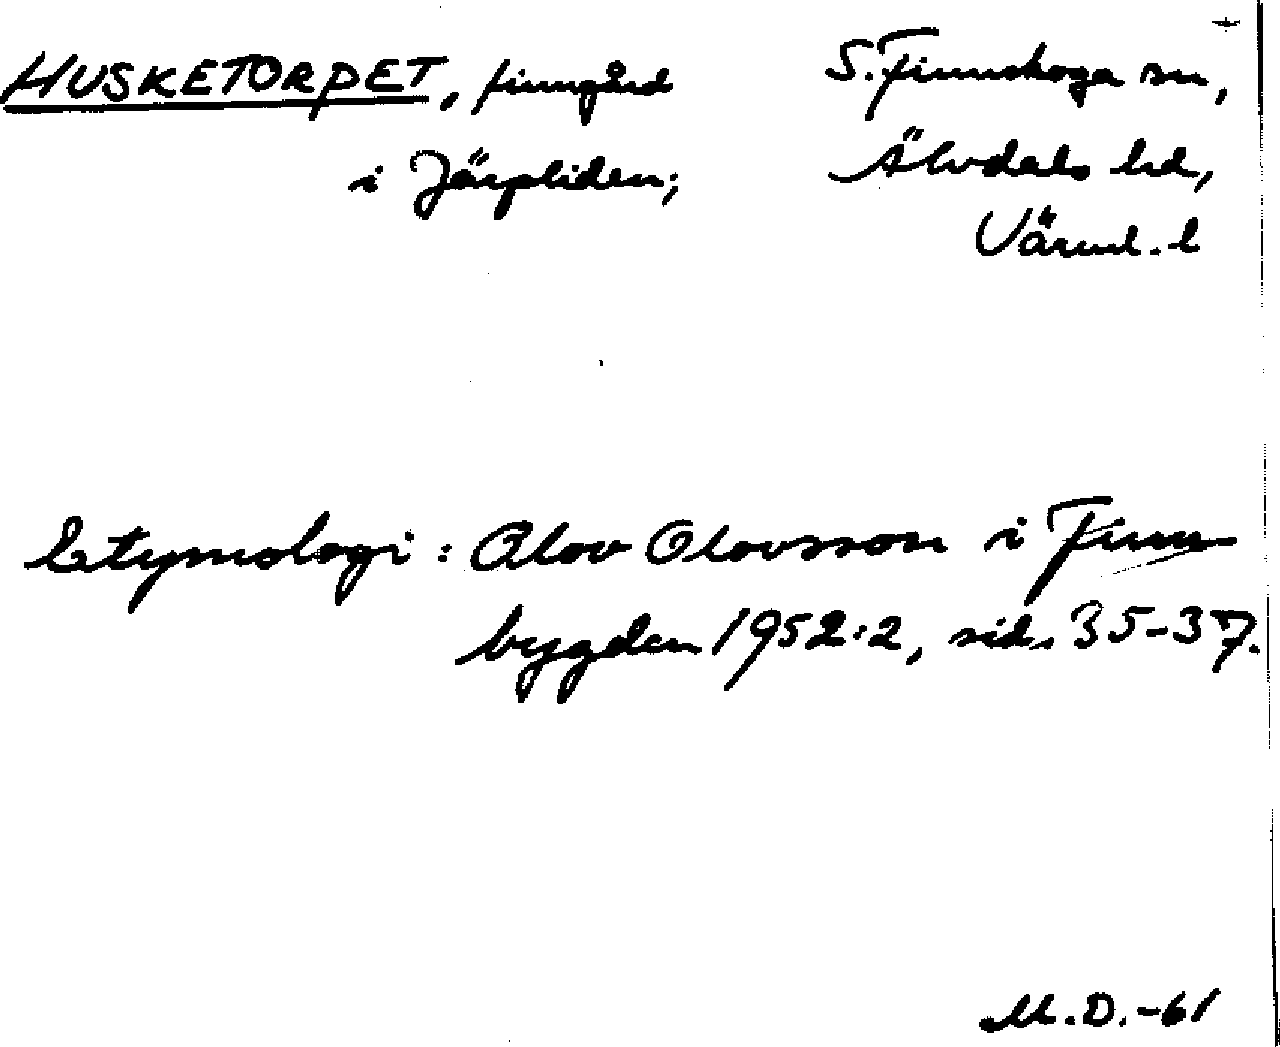 HUSKETORPET, finngård
i Järpliden;
S. Finnskoga sn,
Älvdals hd,
Värml. l
Etymologi: Olov Olovsson i Finn
bygden 1952:2, sid. 35-37.
M.D.-61